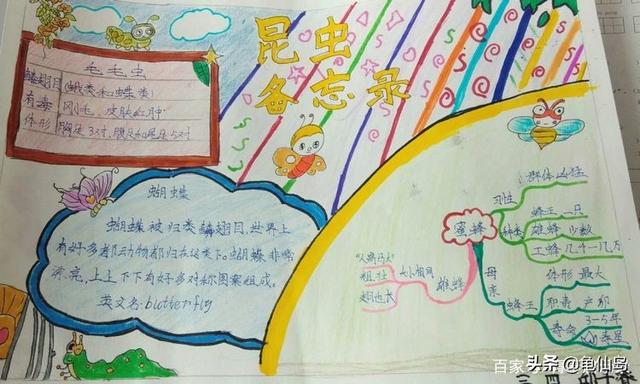 昆虫
备忘录
毛毛虫
鳞翅目 (蛾类和蝶类)
有毒 刚毛，皮肤红肿
体形 胸足3对，腹足和尾足5对
蝴蝶
蝴蝶被归类鳞翅目，世界上
有好多都动物都归在这类下。蝴蝶非常
漂亮，上上下下有好多对称图案组成。
英文名：butterfly
蜜蜂
习性 群体凶猛
种类
蜂王 一只
雄蜂 少数
工蜂 几千-几万
母亲
蜂王
体形 最大
职责 产卵
寿命 3-5年
寿星
雄蜂
粗、壮
翅也长
百家
头条 @龟仙岛
三 四